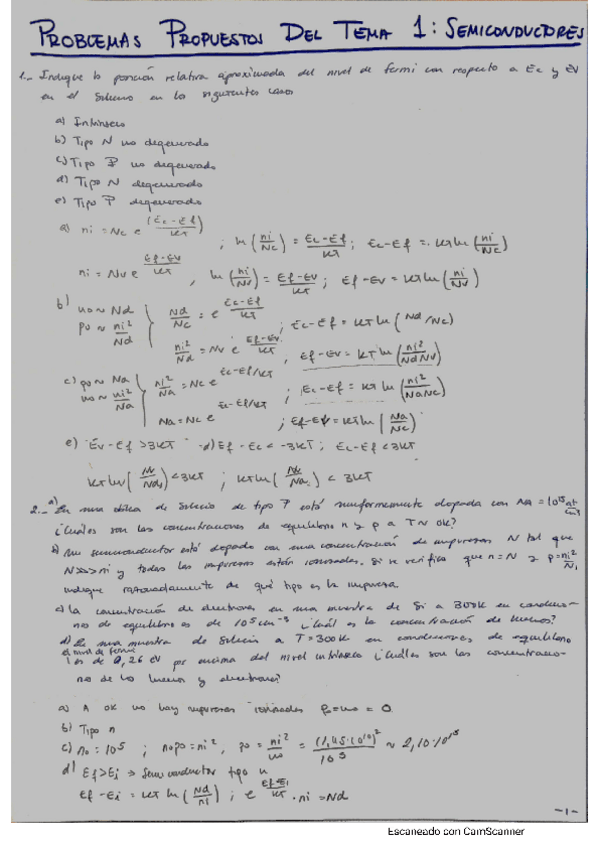 PROBLEMAS PROPUESTOS DEL TEMA 1: SEMICONDUCTORES
1.- Indique la posición relativa aproximada del nivel de fermi con respecto a Ec y EV
en el Silicio en los siguientes casos
a) Intrínseco
b) Tipo N no degenerado
c) Tipo P no degenerado
d) Tipo N degenerado
e) Tipo P degenerado
a) ni = Nc e^((Ec-Ef)/KT) ; ln(ni/Nc) = (Ec-Ef)/KT ; Ec-Ef = KT ln(ni/Nc)
ni = Nv e^((Ef-Ev)/KT) , ln(ni/Nv) = (Ef-Ev)/KT ; Ef-Ev = KT ln(ni/Nv)
b) no ~ Nd } Nd/Nc = e^((Ec-Ef)/KT) ; Ec-Ef = KT ln(Nd/Nc)
po ~ ni²/Nd } ni²/Nd = Nv e^((Ef-Ev)/KT) , Ef-Ev = KT ln(ni²/NdNv)
c) po ~ Na } ni²/Na = Nc e^(Ec-Ef/KT) ; Ec-Ef = KT ln(ni²/NaNc)
no ~ ni²/Na } Na = Nc e^(Ec-Ef/KT) ; Ef-Ev = KT ln(Na/Nc)
e) Ev-Ef > 3KT Ef-Ec < -3KT ; Ec-Ef < 3KT
< 3KT ; KT ln < 3KT
2.- a) En una oblea de silicio de tipo P está uniformemente dopada con NA = 10¹⁵ at/cm³
¿Cuáles son las concentraciones de equilibrio n y p a T~0K?
b) Un semiconductor está dopado con una concentración de impurezas N tal que
N>>>ni y todas las impurezas están ionizadas. Si se verifica que n=N y p=ni²/N,
indique razonadamente de qué tipo es la impureza.
c) La concentración de electrones en una muestra de Si a 300K en condicio-
nes de equilibrio es de 10⁵cm⁻³ ¿Cuál es la concentración de huecos?
d) En una muestra de silicio a T=300K en condiciones de equilibrio
el nivel de fermi
es de 0,26 eV por encima del nivel intrínseco ¿Cuáles son las concentracio-
nes de los huecos y electrones?
a) A 0K no hay impurezas ionizadas po=no=0
b) Tipo n
c) no = 10⁵ ; nopo = ni² , po = ni²/no = (1,45·10¹⁰)²/10⁵ ~ 2,10·10¹⁵
d) Ef>Ei ⇒ Semiconductor tipo n
Ef-Ei = KT ln(Nd/ni) ; e^((Ef-Ei)/KT) · ni = Nd
-1-
Escaneado con CamScanner